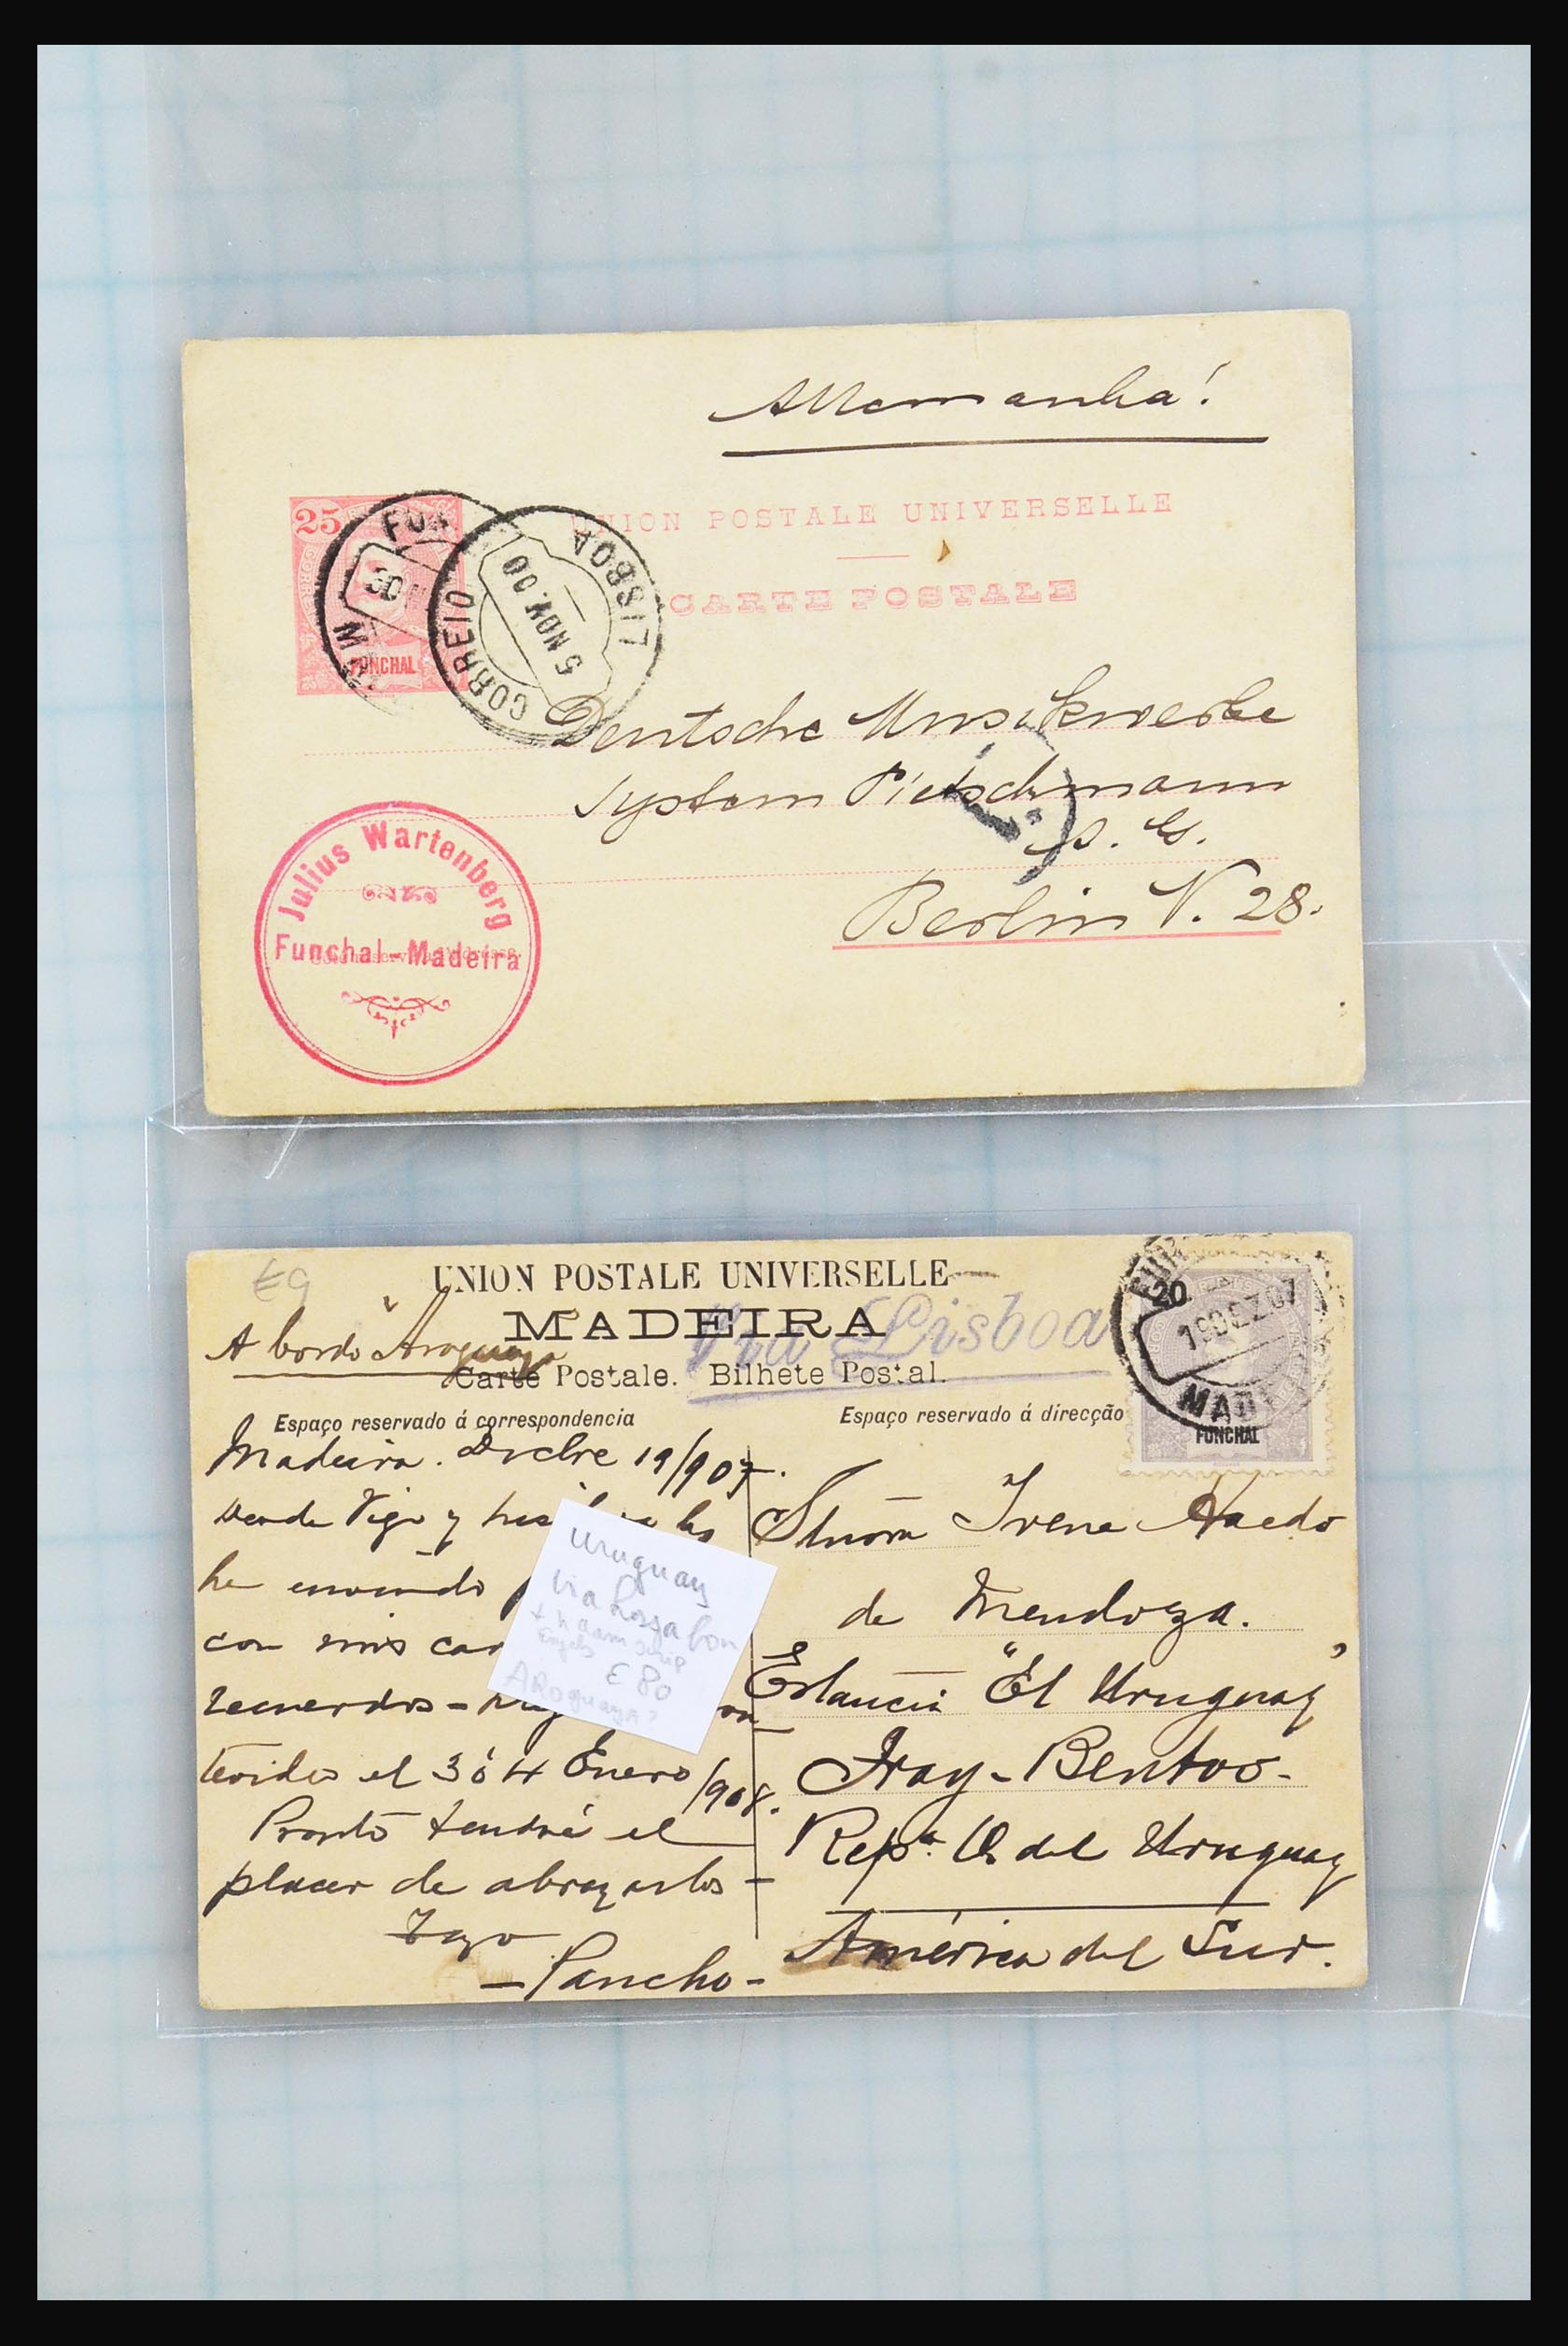 Allemanha!
25
UNION POSTALE UNIVERSELLE
CARTE POSTALE
FUN
30
FUNCHAL
CORREIO
5 NOV. 00
LISBOA
Deutsche Musikwerke
System Pietschmann
A. G.
Berlin N. 28.
Julius Wartenberg
Funchal-Madeira
€9
UNION POSTALE UNIVERSELLE
MADEIRA
Via Lisboa
A bordo "Araguaya
Carte Postale. Bilhete Postal.
Espaço reservado á correspondencia
Espaço reservado á direcção
20
19 DEZ 07
FUNCHAL
Madeira. Dicbre 19/907.
Desde Vigo y
he enviado
con mis
recuerdos -
el 3 ó 4 Enero/908.
Pronto tendré el
placer de abrazarlos -
-Pancho-
Uruguay
via Lissabon
+ naam schip
Engels
€ 80
ARoguaya?
Señora Irene Haedo
de Mendoza.
Estancia "El Uruguay"
Fray-Bentos-
Repª. O. del Uruguay
América del Sur.